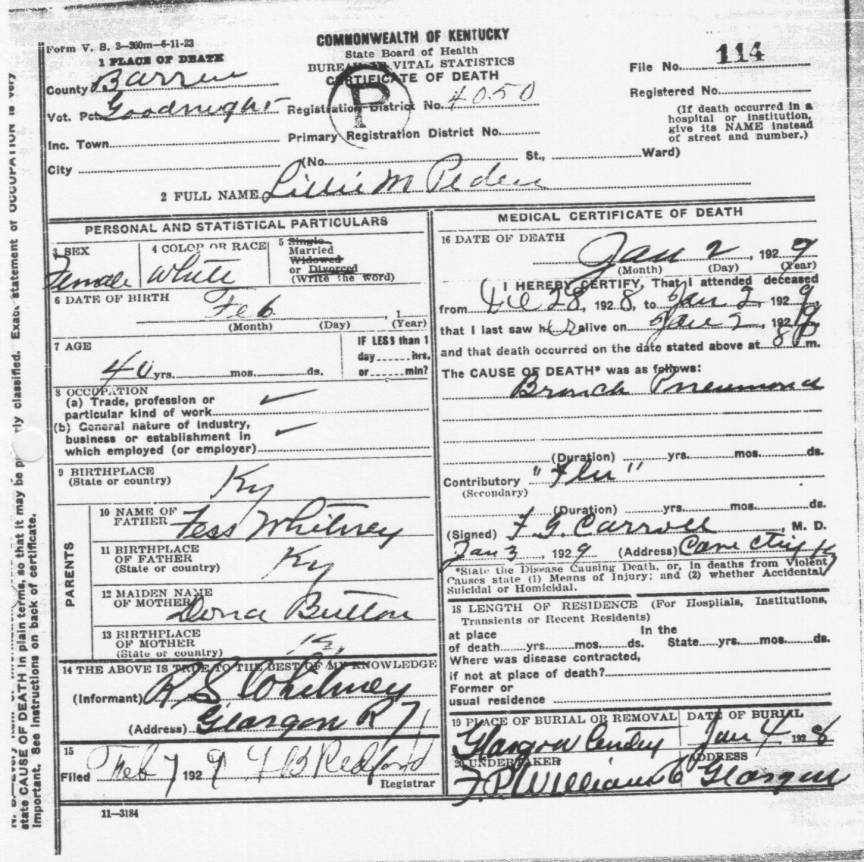 Form V. S. 2—200m—6-11-23
COMMONWEALTH OF KENTUCKY
State Board of Health
BUREAU OF VITAL STATISTICS
CERTIFICATE OF DEATH
File No. 114
Registered No.
(If death occurred in a hospital or institution, give its NAME instead of street and number.)
1 PLACE OF DEATH
County Barren
Vot. Pct. Goodnight
Registration District No. 4050
P
Inc. Town
Primary Registration District No.
City
(No. St., Ward)
2 FULL NAME Lillie M Peden
PERSONAL AND STATISTICAL PARTICULARS
3 SEX
Female
4 COLOR OR RACE
White
5 Single
Married
Widowed
or Divorced
(Write the word)
6 DATE OF BIRTH
Feb , 1
(Month) (Day) (Year)
7 AGE
40 yrs. mos. ds.
IF LESS than 1
day hrs.
or min?
8 OCCUPATION
(a) Trade, profession or
particular kind of work ✓
(b) General nature of industry,
business or establishment in ✓
which employed (or employer)
9 BIRTHPLACE
(State or country) Ky
PARENTS
10 NAME OF
FATHER Fess Whitney
11 BIRTHPLACE
OF FATHER Ky
(State or country)
12 MAIDEN NAME
OF MOTHER Dona Button
13 BIRTHPLACE
OF MOTHER Ky
(State or country)
14 THE ABOVE IS TRUE TO THE BEST OF MY KNOWLEDGE
(Informant) R S Whitney
(Address) Glasgow R 71
15
Filed Feb 7 1929 F B Redford
Registrar
11—3184
MEDICAL CERTIFICATE OF DEATH
16 DATE OF DEATH
Jan 2, 1929
(Month) (Day) (Year)
I HEREBY CERTIFY, That I attended deceased
from Dec 28, 1928, to Jan 2, 1929,
that I last saw her alive on Jan 2, 1929,
and that death occurred on the date stated above at 8 P m.
The CAUSE OF DEATH* was as follows:
Bronch Pneumonia
(Duration) yrs. mos. ds.
Contributory "Flu"
(Secondary)
(Duration) yrs. mos. ds.
(Signed) F G. Carroll, M. D.
Jan 3, 1929 (Address) Cave City Ky
*State the Disease Causing Death, or, in deaths from Violent
Causes state (1) Means of Injury; and (2) whether Accidental,
Suicidal or Homicidal.
18 LENGTH OF RESIDENCE (For Hospitals, Institutions,
Transients or Recent Residents)
at place In the
of death yrs. mos. ds. State yrs. mos. ds.
Where was disease contracted,
if not at place of death?
Former or
usual residence
19 PLACE OF BURIAL OR REMOVAL
Glasgow
DATE OF BURIAL
Jan 4 1928
20 UNDERTAKER
F. P. William
ADDRESS
Glasgow
state CAUSE OF DEATH in plain terms, so that it may be classified. Exact statement of OCCUPATION is very
important. See instructions on back of certificate.